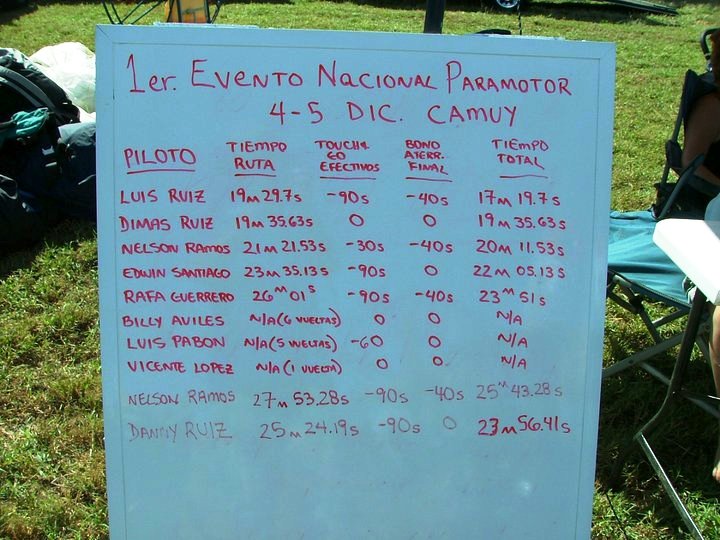 1er. EVENTO NACIONAL PARAMOTOR
4-5 DIC. CAMUY
PILOTO TIEMPO RUTA TOUCH & GO EFECTIVOS BONO ATERR. FINAL TIEMPO TOTAL
LUIS RUIZ 19m 29.7s -90s -40s 17m 19.7s
DIMAS RUIZ 19m 35.63s 0 0 19m 35.63s
NELSON RAMOS 21m 21.53s -30s -40s 20m 11.53s
EDWIN SANTIAGO 23m 35.13s -90s 0 22m 05.13s
RAFA GUERRERO 26m 01s -90s -40s 23m 51s
BILLY AVILES N/A (6 VUELTAS) 0 0 N/A
LUIS PABON N/A (5 VUELTAS) -60 0 N/A
VICENTE LOPEZ N/A (1 VUELTA) 0 0 N/A
NELSON RAMOS 27m 53.28s -90s -40s 25m 43.28s
DANNY RUIZ 25m 24.19s -90s 0 23m 56.41s